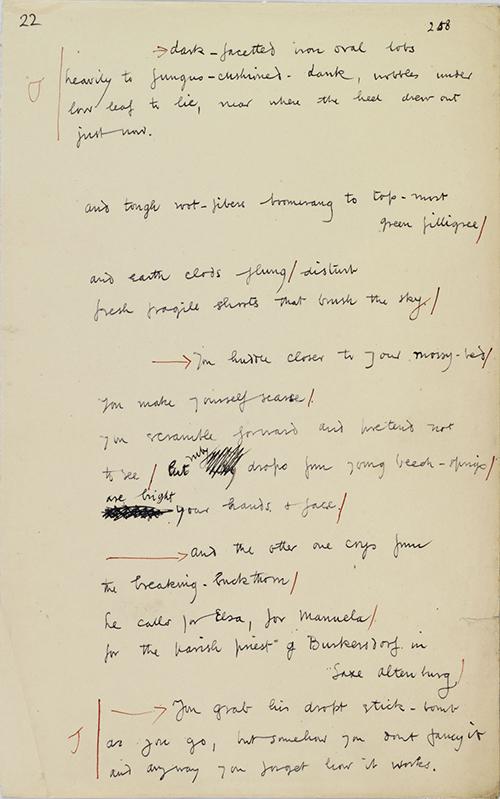 22
258
dark-facetted iron oval lobs
heavily to fungus-cushioned-dank, wobbles under
low leaf to lie, near where the heel drew out
just now.
and tough root-fibres boomerang to top-most
green filligree/
and earth clods flung/disturb
fresh fragile shoots that brush the sky./
You huddle closer to your mossy-bed/
you make yourself scarse/
you scramble forward and pretend not
to see/ But ruby drops from young beech-sprigs/
are bright your hands & face./
and the other one crys from
the breaking-buckthorn/
he calls for Elsa, for Manuela/
for the parish priest of Burkersdorf in
Saxe Altenburg/
You grab his dropt stick-bomb
as you go, but somehow you dont fancy it
and anyway you forget how it works.